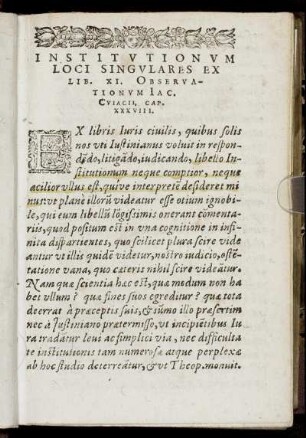 INSTITVTIONVM
LOCI SINGVLARES EX
LIB. XI. OBSERVA-
TIONVM IAC.
CVIACII, CAP.
XXXVIII.
EX libris Iuris ciuilis, quibus solis
nos vti Iustinianus voluit in respon-
dẽdo, litigãdo, iudicando, libello In-
stitutionum neque comptior, neque
vllus est, quíve interpretẽ desideret mi
nus: vt planè illorũ videatur esse otium ignobi-
le, qui eum libellũ lõgissimis onerant cõmenta-
riis, quod positum est in vna cognitione in infi-
nita dispartientes, quo scilicet plura scire vide
antur vt illis quidẽ videtur, nostro iudicio, ostẽ-
tatione vana, quo cæteris nihil scire videãtur.
Nam quæ scientia hæc est, quæ modum non ha
bet vllum? quæ fines suos egreditur? quæ tota
deerrat à præceptis suis, & iũmo illo præsertim
nec à Iustiniano prætermisso, vt incipiẽtibus Iu
ra tradãtur leui ac simplici via, nec difficulta
te institutionis tam numerosæ atque perplexæ
ab hoc studio deterreãtur, & vt Theop. monuit.